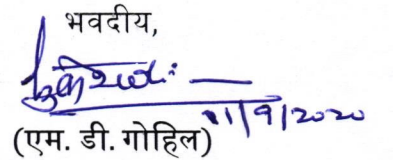 भवदीय,
11/9/2020
(एम. डी. गोहिल)